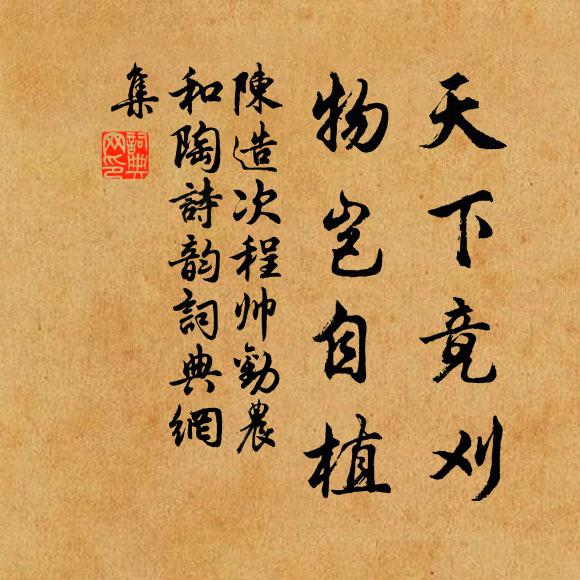 天下竟刈
物岂自植
陳造次程帅勸農
和陶詩韵詞典網
集
詞典
网印